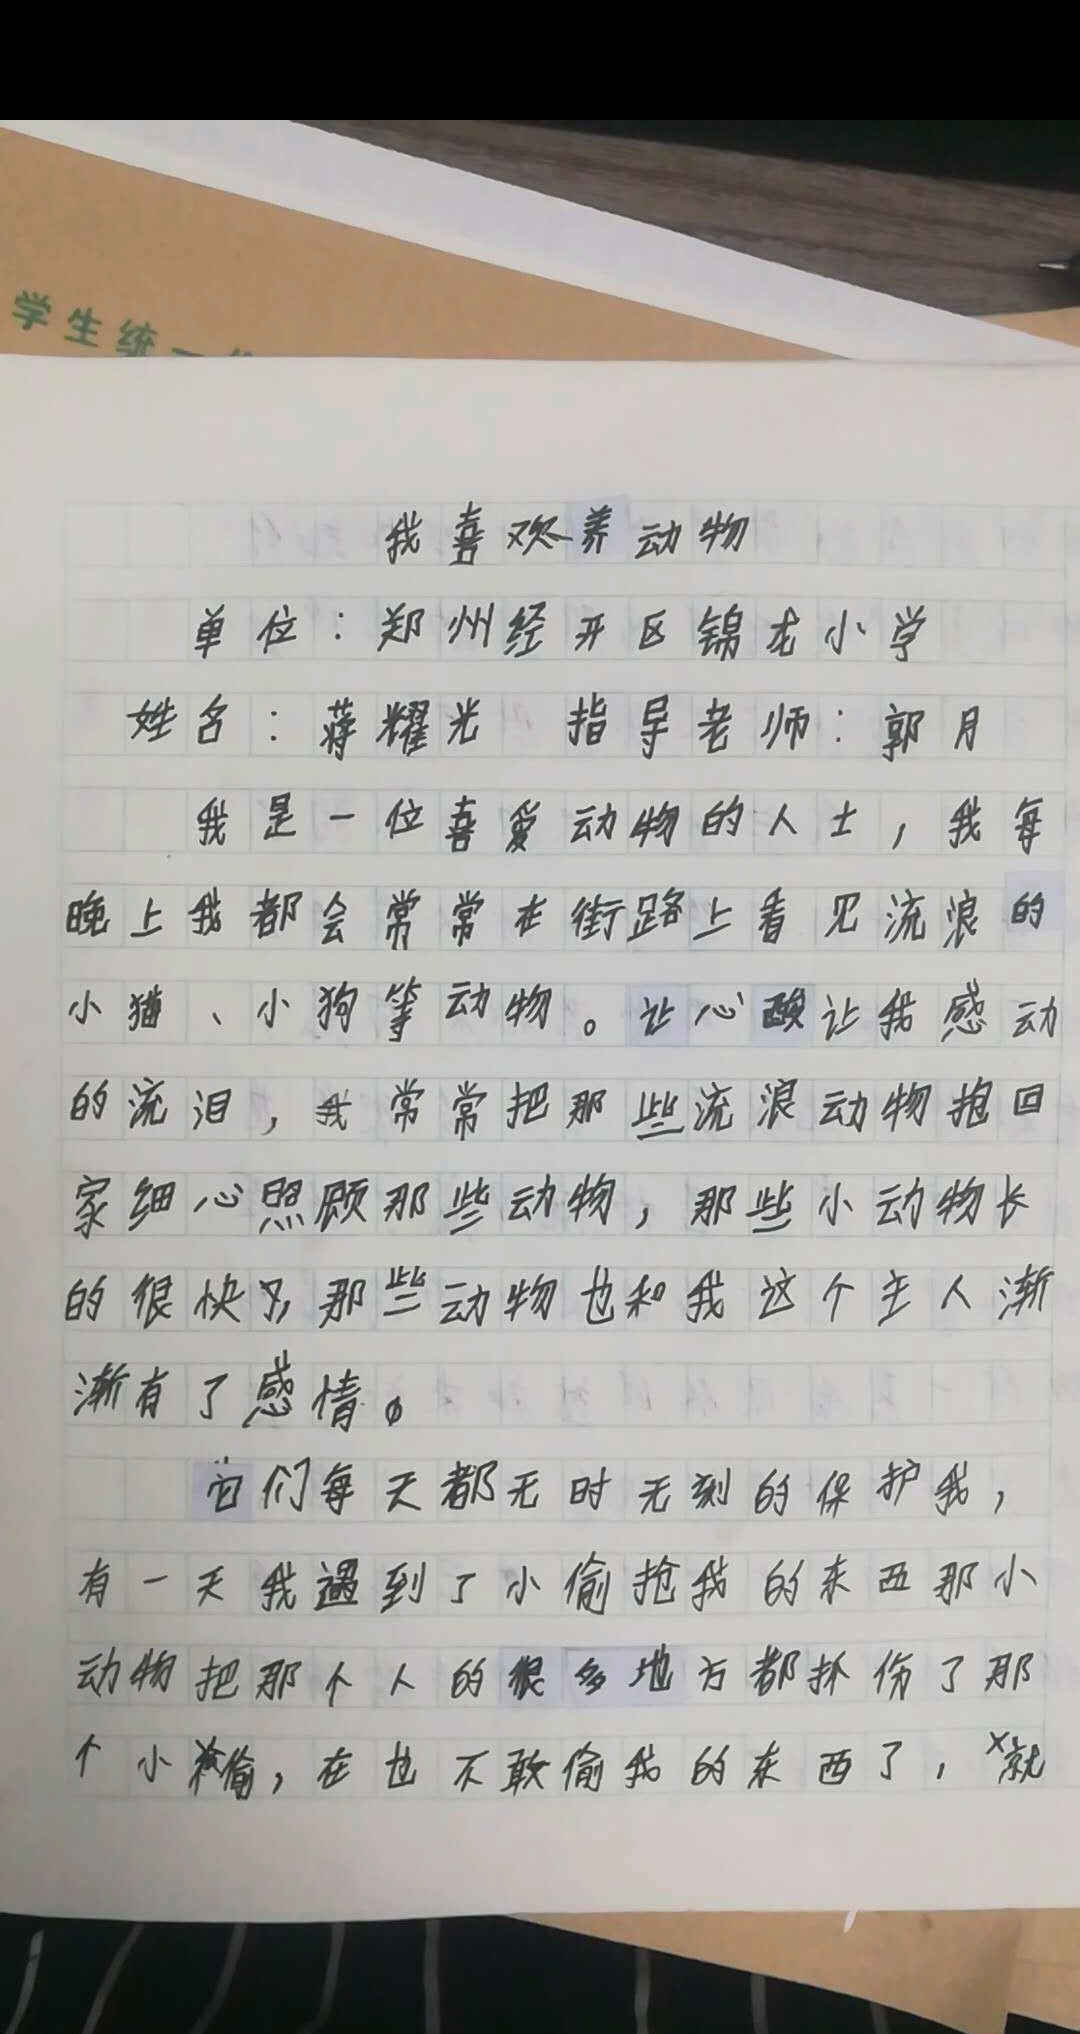 学生统一
我喜欢养动物
单位：郑州经开区锦龙小学
姓名：蒋耀光 指导老师：郭月
我是一位喜爱动物的人士，我每
晚上我都会常常在街路上看见流浪的
小猫、小狗等动物。让心酸让我感动
的流泪，我常常把那些流浪动物抱回
家细心照顾那些动物，那些小动物长
的很快，那些动物也和我这个主人渐
渐有了感情。
它们每天都无时无刻的保护我，
有一天我遇到了小偷抢我的东西那小
动物把那个人的很多地方都抓伤了那
个小偷，在也不敢偷我的东西了，就